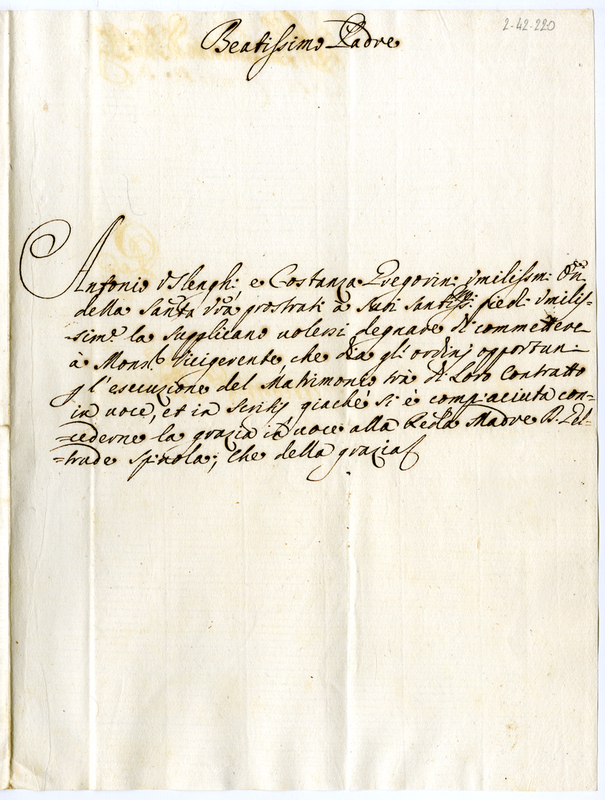 2-42-220
Beatissimo Padre
Antonio e Costanza umilissm:
della Santa Vrã prostrati à Suoi Santiss: piedi umilis-
-sim: la Supplicano volersi degnare di commettere
à Mons: Vicigerente, che dia gl: ordinj opportun:
l'esecuzione del Matrimonio trà di Loro Contratto
in voce, et in Scritis, giachè si è compiaciuta con-
=cederne la grazia in voce alla Madre
=trude Spinola; Che della grazia